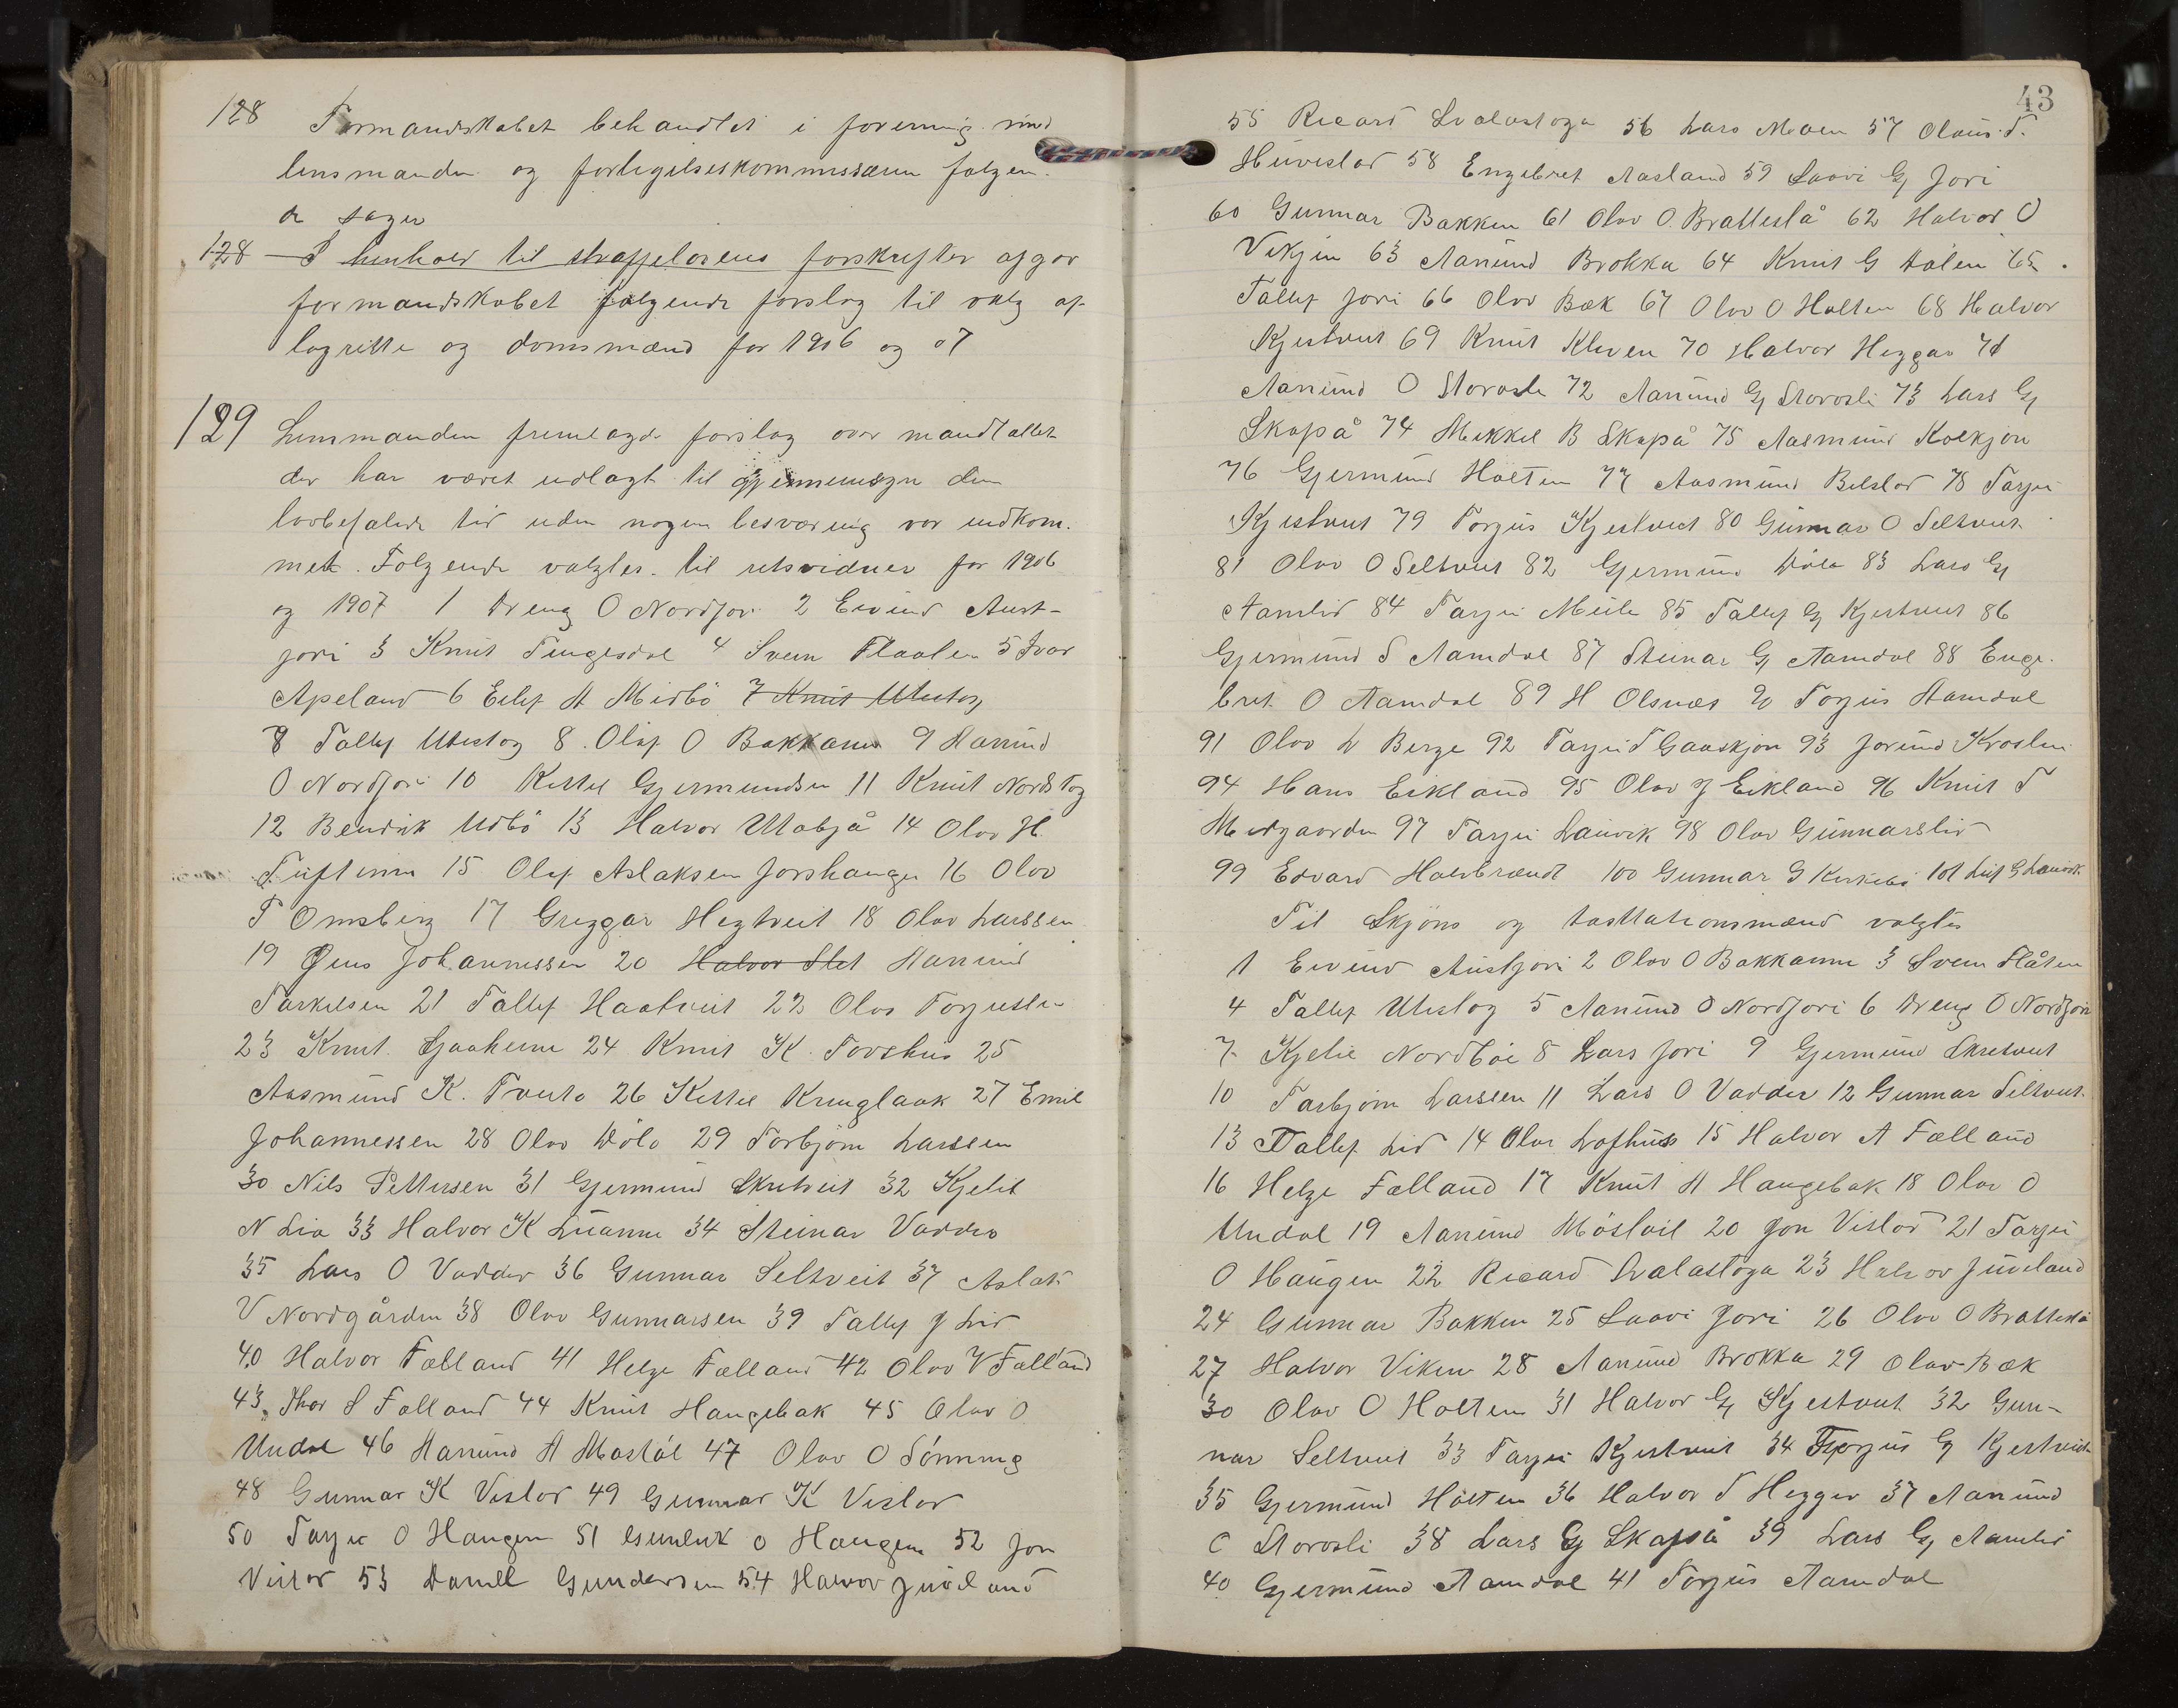 128 Formandskabet behandlet i forening med
lensmanden og forligelseskommissæren følgen-
de sager
128 I henhold til straffelovens forskrifter afgav
formandskabet følgende forslag til valg af
lagrette og domsmænd for 1906 og 07
129 Lensmanden fremlagde forslag over mandtallet
der har været udlagt til gjennemsyn den
lovbefalede tid uden nogen besværing var indkom-
met. Følgende valgtes til retsvidner for 1906
og 1907 1 Dreng O Nordjori 2 Eivind Aust-
jori 3 Knut Tingesdal 4 Svein Flaaten 5 Ivar
Apeland 6 Eilef A Midbö 7 Knut Utistog
8 Tallef Utistog 8 Olaf O Bakkann 9 Aanund
O Nordjori 10 Kittel Gjermundsen 11 Knut Nordstog
12 Bendik Udbö 13 Halvor Utabjå 14 Olav H.
Tuftinn 15 Olaf Aslaksen Jorshaugen 16 Olav
T Omsberg 17 Greggar Hegtveit 18 Olav Larssen
19 Jens Johannessen 20 Halvor Slet Aanund
Tarkelsen 21 Tallef Haatveit 22 Olav Torjusli
23 Knut Gjaaheim 24 Knut K. Tovshus 25
Aasmund K. Tveito 26 Kittel Kruglaak 27 Emil
Johannessen 28 Olav Döla 29 Torbjörn Larssen
30 Nils Pettersen 31 Gjermund Skretveit 32 Kjetil
N Lia 33 Halvor K Luann 34 Steinar Vadder
35 Lars O Vadder 36 Gunnar Seltveit 37 Aslak
V Nordgården 38 Olav Gunnarsen 39 Tallef J Lid
40 Halvor Fælland 41 Helge Fælland 42 Olav V Fælland
43 Thor S Fælland 44 Knut Haugebak 45 Olav O
Undal 46 Aanund A Mostöl 47 Olav O Sönning
48 Gunnar K Vislod 49 Gunnar K Vislod
50 Tarjei O Haugen 51 Gunleik O Haugen 52 Jon
Vislod 53 Daniel Gundersen 54 Halvor Juveland
43
55 Ricard Svalastoga 56 Lars Moen 57 Olaus T.
Huveslod 58 Engebret Aasland 59 Saavi G Jori
60 Gunnar Bakken 61 Olav O. Bratteslå 62 Halvor O
Vikjin 63 Aanund Brokka 64 Knut G Dalen 65
Tallef Jori 66 Olav Bæk 67 Olav O Holten 68 Halvor
Kjestveit 69 Knut Kleven 70 Halvor Heggar 71
Aanund O Storosli 72 Aanund G Storosli 73 Lars G
Skopå 74 Mikkel B Skopå 75 Aasmund Kolkjon
76 Gjermund Holten 77 Aasmund Bilslod 78 Tarjei
Kjestveit 79 Torjus Kjestveit 80 Gunnar O Seltveit
81 Olav O Seltveit 82 Gjermund Döla 83 Lars G
Aamlid 84 Tarjei Miile 85 Tallef G Kjestveit 86
Gjermund S Aamdal 87 Steinar G Aamdal 88 Enge-
bret O Aamdal 89 H Olsnæs 90 Torjus Aamdal
91 Olav L Berge 92 Tarjei T Gaaskjon 93 Jorund Kroslin
94 Hans Eikland 95 Olav J Eikland 96 Knut T
Midgaarden 97 Tarjei Lauvik 98 Olav Gunnarslid
99 Edvard Halvbrændt 100 Gunnar G Kirkebö 101 Leif G Lauvik
Til Skjöns og taxtationsmænd valgtes
1 Eivind Austjori 2 Olav O Bakkann 3 Svein Flåten
4 Tallef Utistog 5 Aanund O Nordjori 6 Dreng O Nordjori
7 Kjetil Nordböe 8 Lars Jori 9 Gjermund Skretveit
10 Torbjörn Larssen 11 Lars O Vadder 12 Gunnar Seltveit
13 Tallef Lid 14 Olav Lofthus 15 Halvor A Fælland
16 Helge Fælland 17 Knut A Haugebak 18 Olav O
Undal 19 Aanund Möstöil 20 Jon Vislod 21 Tarjei
O Haugen 22 Ricard Svalastoga 23 Halvor Juveland
24 Gunnar Bakken 25 Saavi Jori 26 Olav O Bratteslå
27 Halvor Viken 28 Aanund Brokka 29 Olav Bæk
30 Olav O Holten 31 Halvor G Kjestveit 32 Gun-
nar Seltveit 33 Tarjei Kjestveit 34 Torjus G Kjestveit
35 Gjermund Holten 36 Halvor T Hegger 37 Aanund
O Storosli 38 Lars G Skopå 39 Lars G Aamlid
40 Gjermund Aamdal 41 Torjus Aamdal